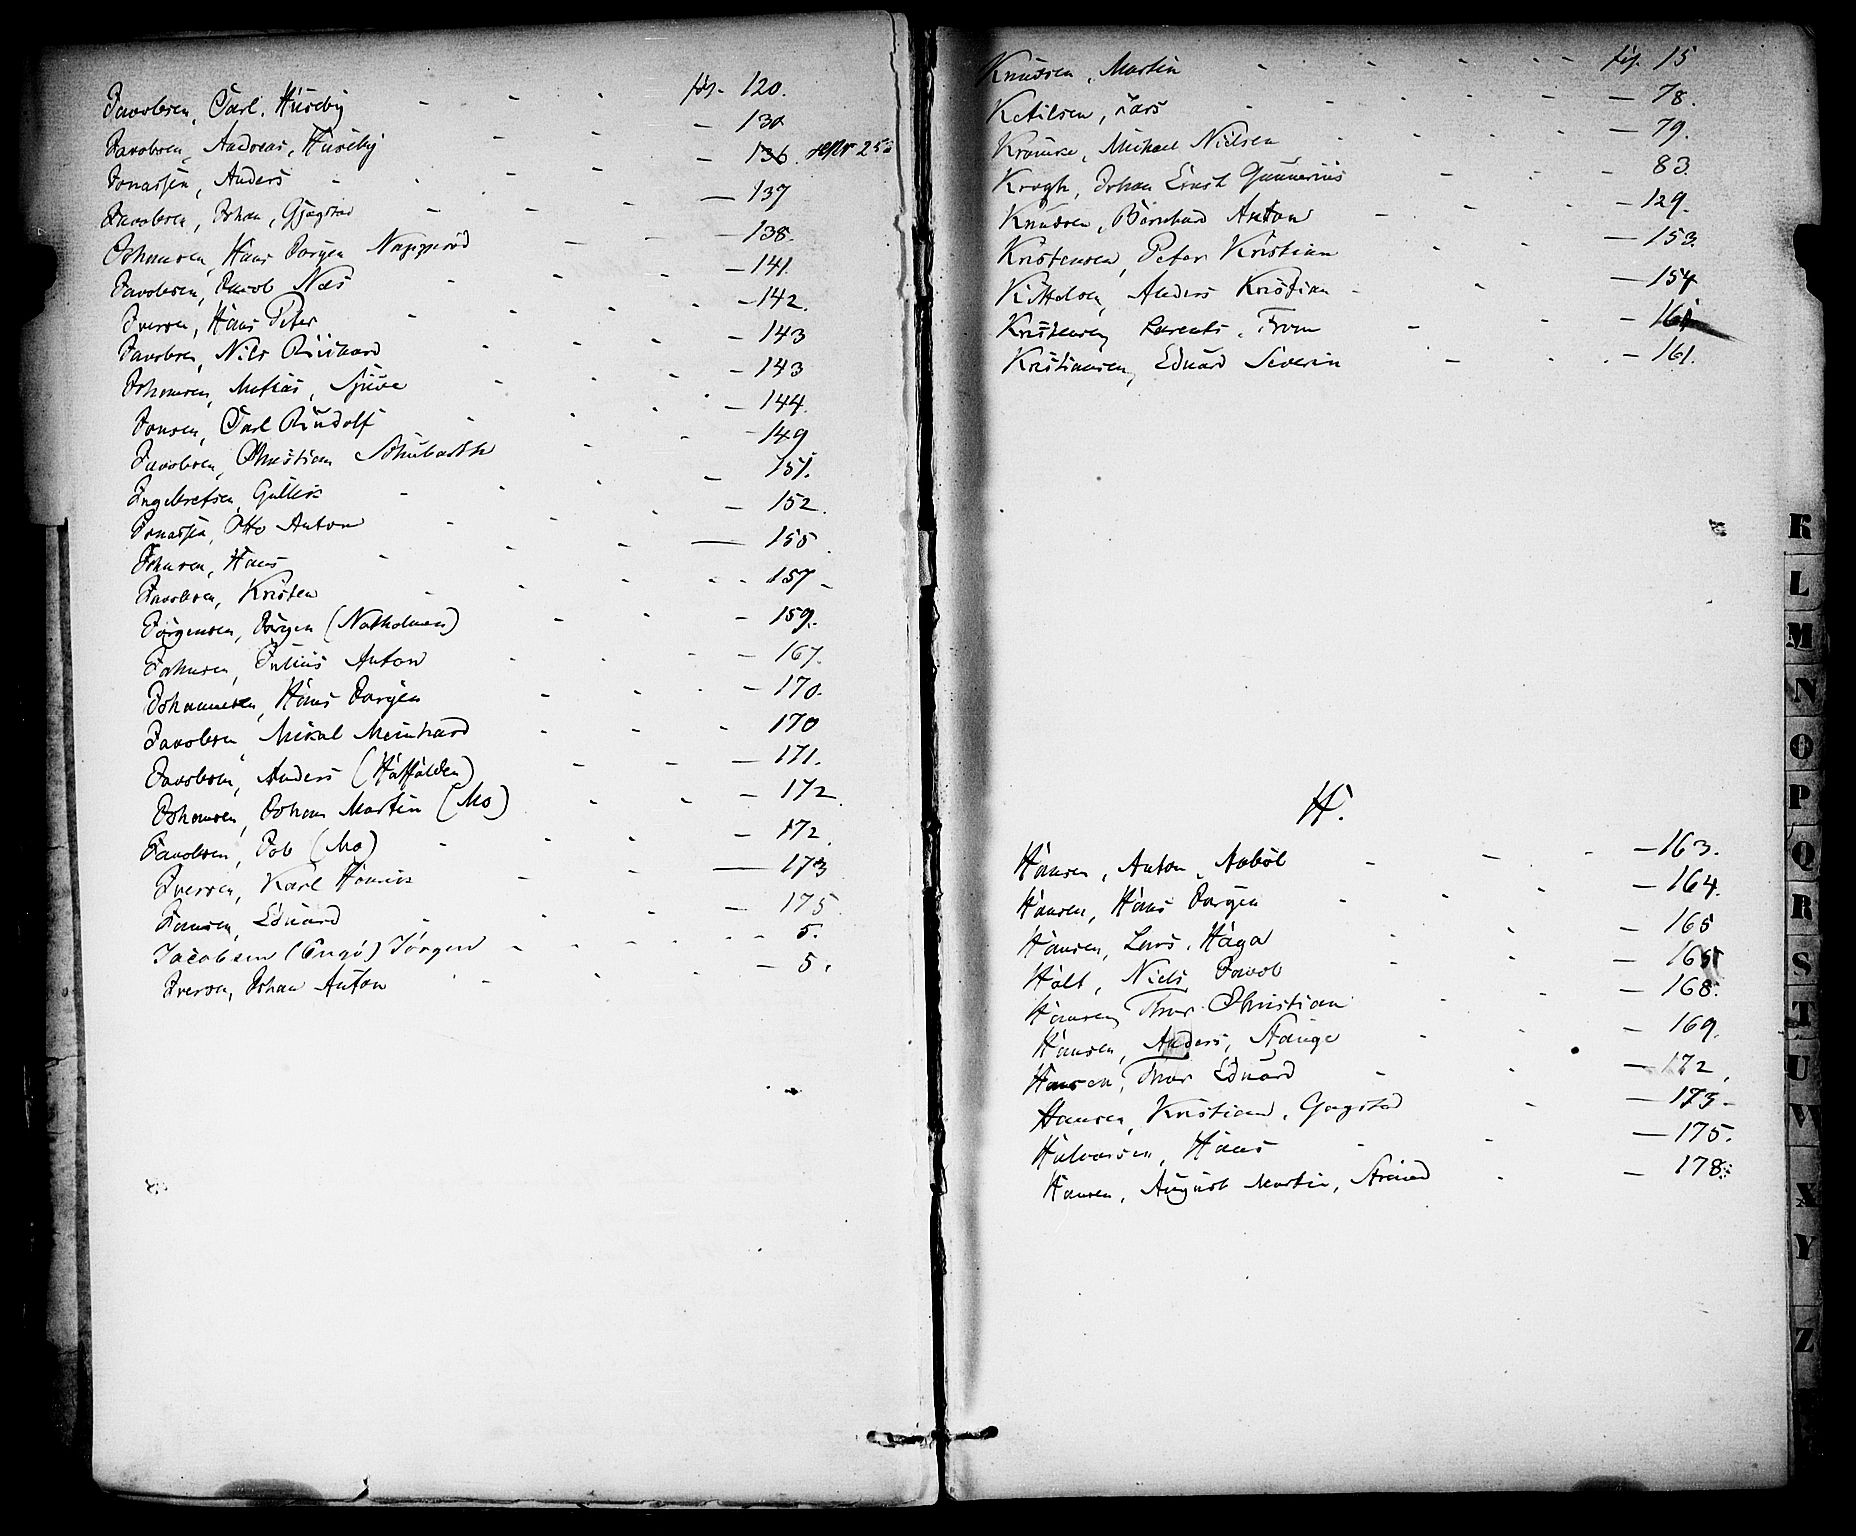 Jacobsen, Carl, Huseby - - - pag. 120.
Jacobsen, Andreas, Huseby - - - 130
Jonassen, Anders - - - - 136.
Jacobsen, Johan, Gjøgstad - - - 137
Johansen, Hans Jørgen Napperød - - - 138.
Jacobsen, Jacob Næs - - - 141.
Iversen, Hans Peter - - - 142.
Jacobsen, Nils Richard - - - 143
Johansen, Mathias, - - - 143
Jensen, Carl Rudolf - - - 144.
Jacobsen, Christian Schubarth - - 149
Ingebretsen, Gullik - - - 151.
Jonassen, Otto Anton - - - 152.
Johnsen, Hans - - - 155.
Jacobsen, Kristen - - - 157
Jørgensen, Jørgen (Natholmen) - - - 159.
Johnsen, Julius Anton - - - 167.
Johannesen, Hans Jørgen - - - 170.
Jacobsen, Mikal Meinhard - - - 170
Jacobsen, Anders (Haffalden) - - - 171.
Johansen, Johan Martin (Mo) - - - 172.
Jacobsen, Job (Mo) - - - 172.
Iversen, Karl - - - 173
Jansen, Eduard - - - 175.
Jacobsen (Engø) Jørgen - - - 5.
Iversen, Johan Anton - - - 5.
Knudsen, Martin - - - pag. 15
Ketilsen, Lars - - - 78.
Nielsen - - - 79.
Krogh, Johan Ernst Gunnerius - - - 83.
Knudsen, Bernhard Anton - - - 129.
Kristensen, Peter Kristian - - - 153.
Kittelsen, Anders Kristian - - - 154
Kristensen, Larents, From - - -
Kristiansen, Eduard Severin - - - 161.
H.
Hansen, Anton, - - - 163.
Hansen, Hans Jørgen - - - 164.
Hansen, Lars, Haga - - - 165
Holt, Niels Jacob - - - 165
Hansen, Thor Christian - - - 168.
Hansen, Anders, Stange - - - 169.
Hansen, Thor Eduard - - - 172.
Hansen, Kristian, Gogstad - - - 173.
Halvorsen, Hans - - - 175.
Hansen, August Martin, - - - 178.
K
L
M
N
O
P
Q
R
S
T
U
V
X
Y
Z